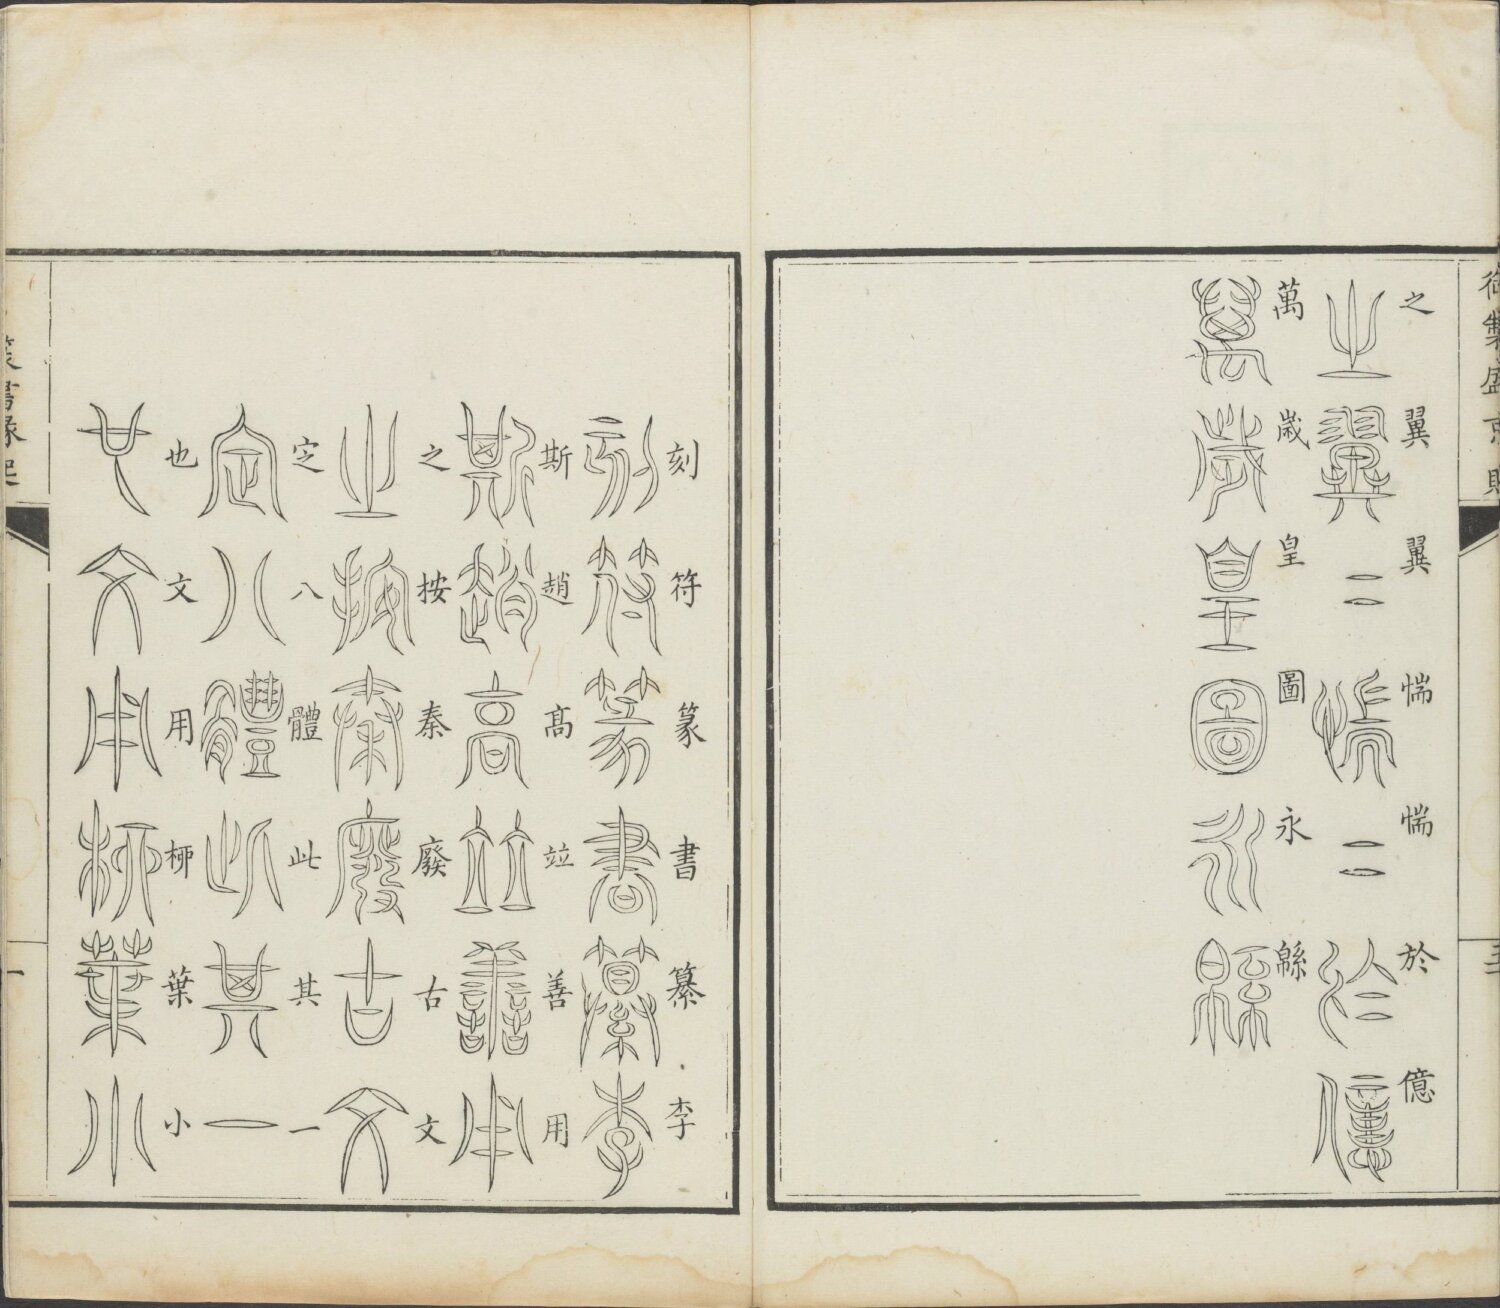 御製盛京賦
之翼翼惴惴於億
萬歲皇圖永緜
刻符篆書纂李
斯趙高竝善用
之按秦廢古文
定八體此其一
也文用柳葉小
篆書緣起
一